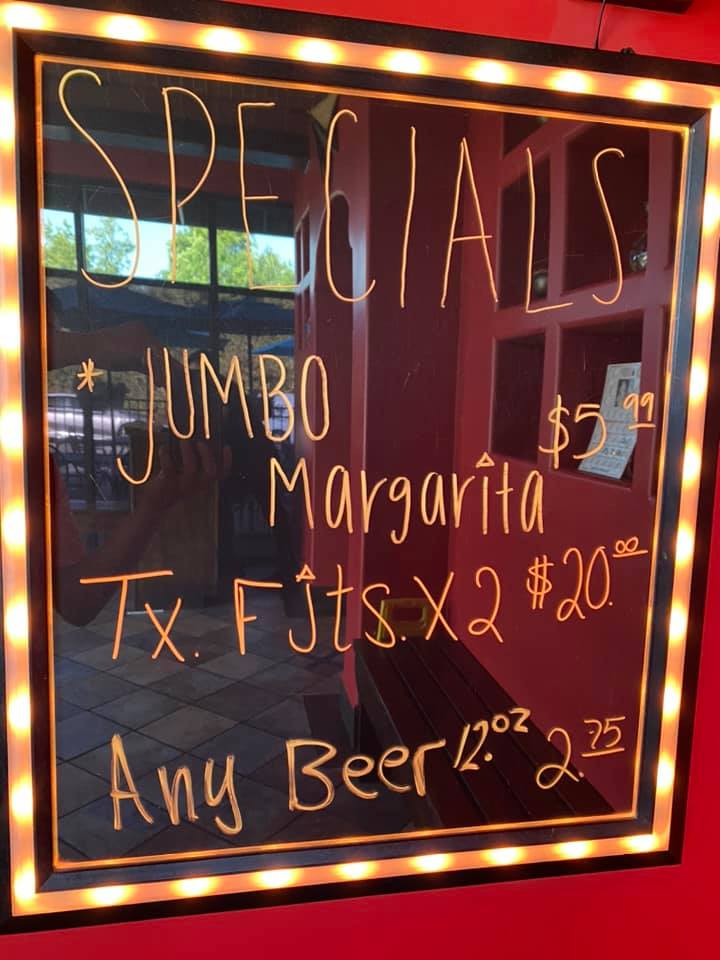 SPECIALS
* JUMBO
Margarita $5.99
Tx. Fjts. X2 $20.00
Any Beer 12.oz 2.75